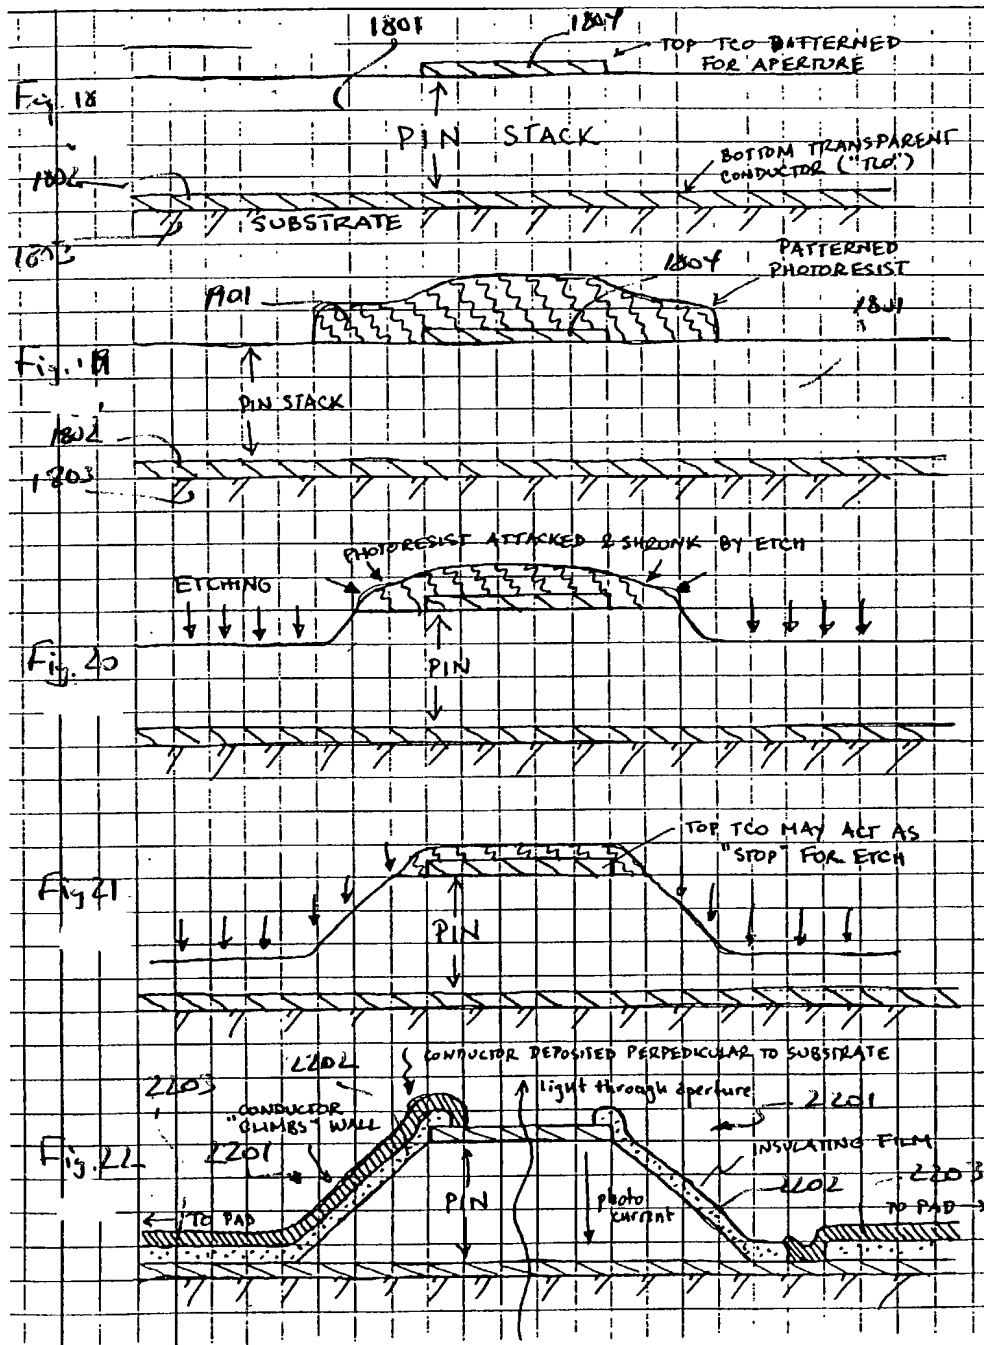 1801
1804
TOP TCO PATTERNED
FOR APERTURE
Fig. 18
PIN STACK
BOTTOM TRANSPARENT
CONDUCTOR ("TCO")
1802
SUBSTRATE
1804
PATTERNED
PHOTORESIST
1901
1801
Fig. 19
PIN STACK
1802
1803
PHOTORESIST ATTACKED & SHRUNK BY ETCH
ETCHING
Fig. 20
PIN
TOP TCO MAY ACT AS
"STOP" FOR ETCH
Fig 21
PIN
CONDUCTOR DEPOSITED PERPEDICULAR TO SUBSTRATE
2202
2203
light through aperture
"CONDUCTOR
CLIMBS" WALL
2201
2201
INSULATING FILM
Fig. 22
2202
2203
PIN
photo
current
TO PAD
TO PAD